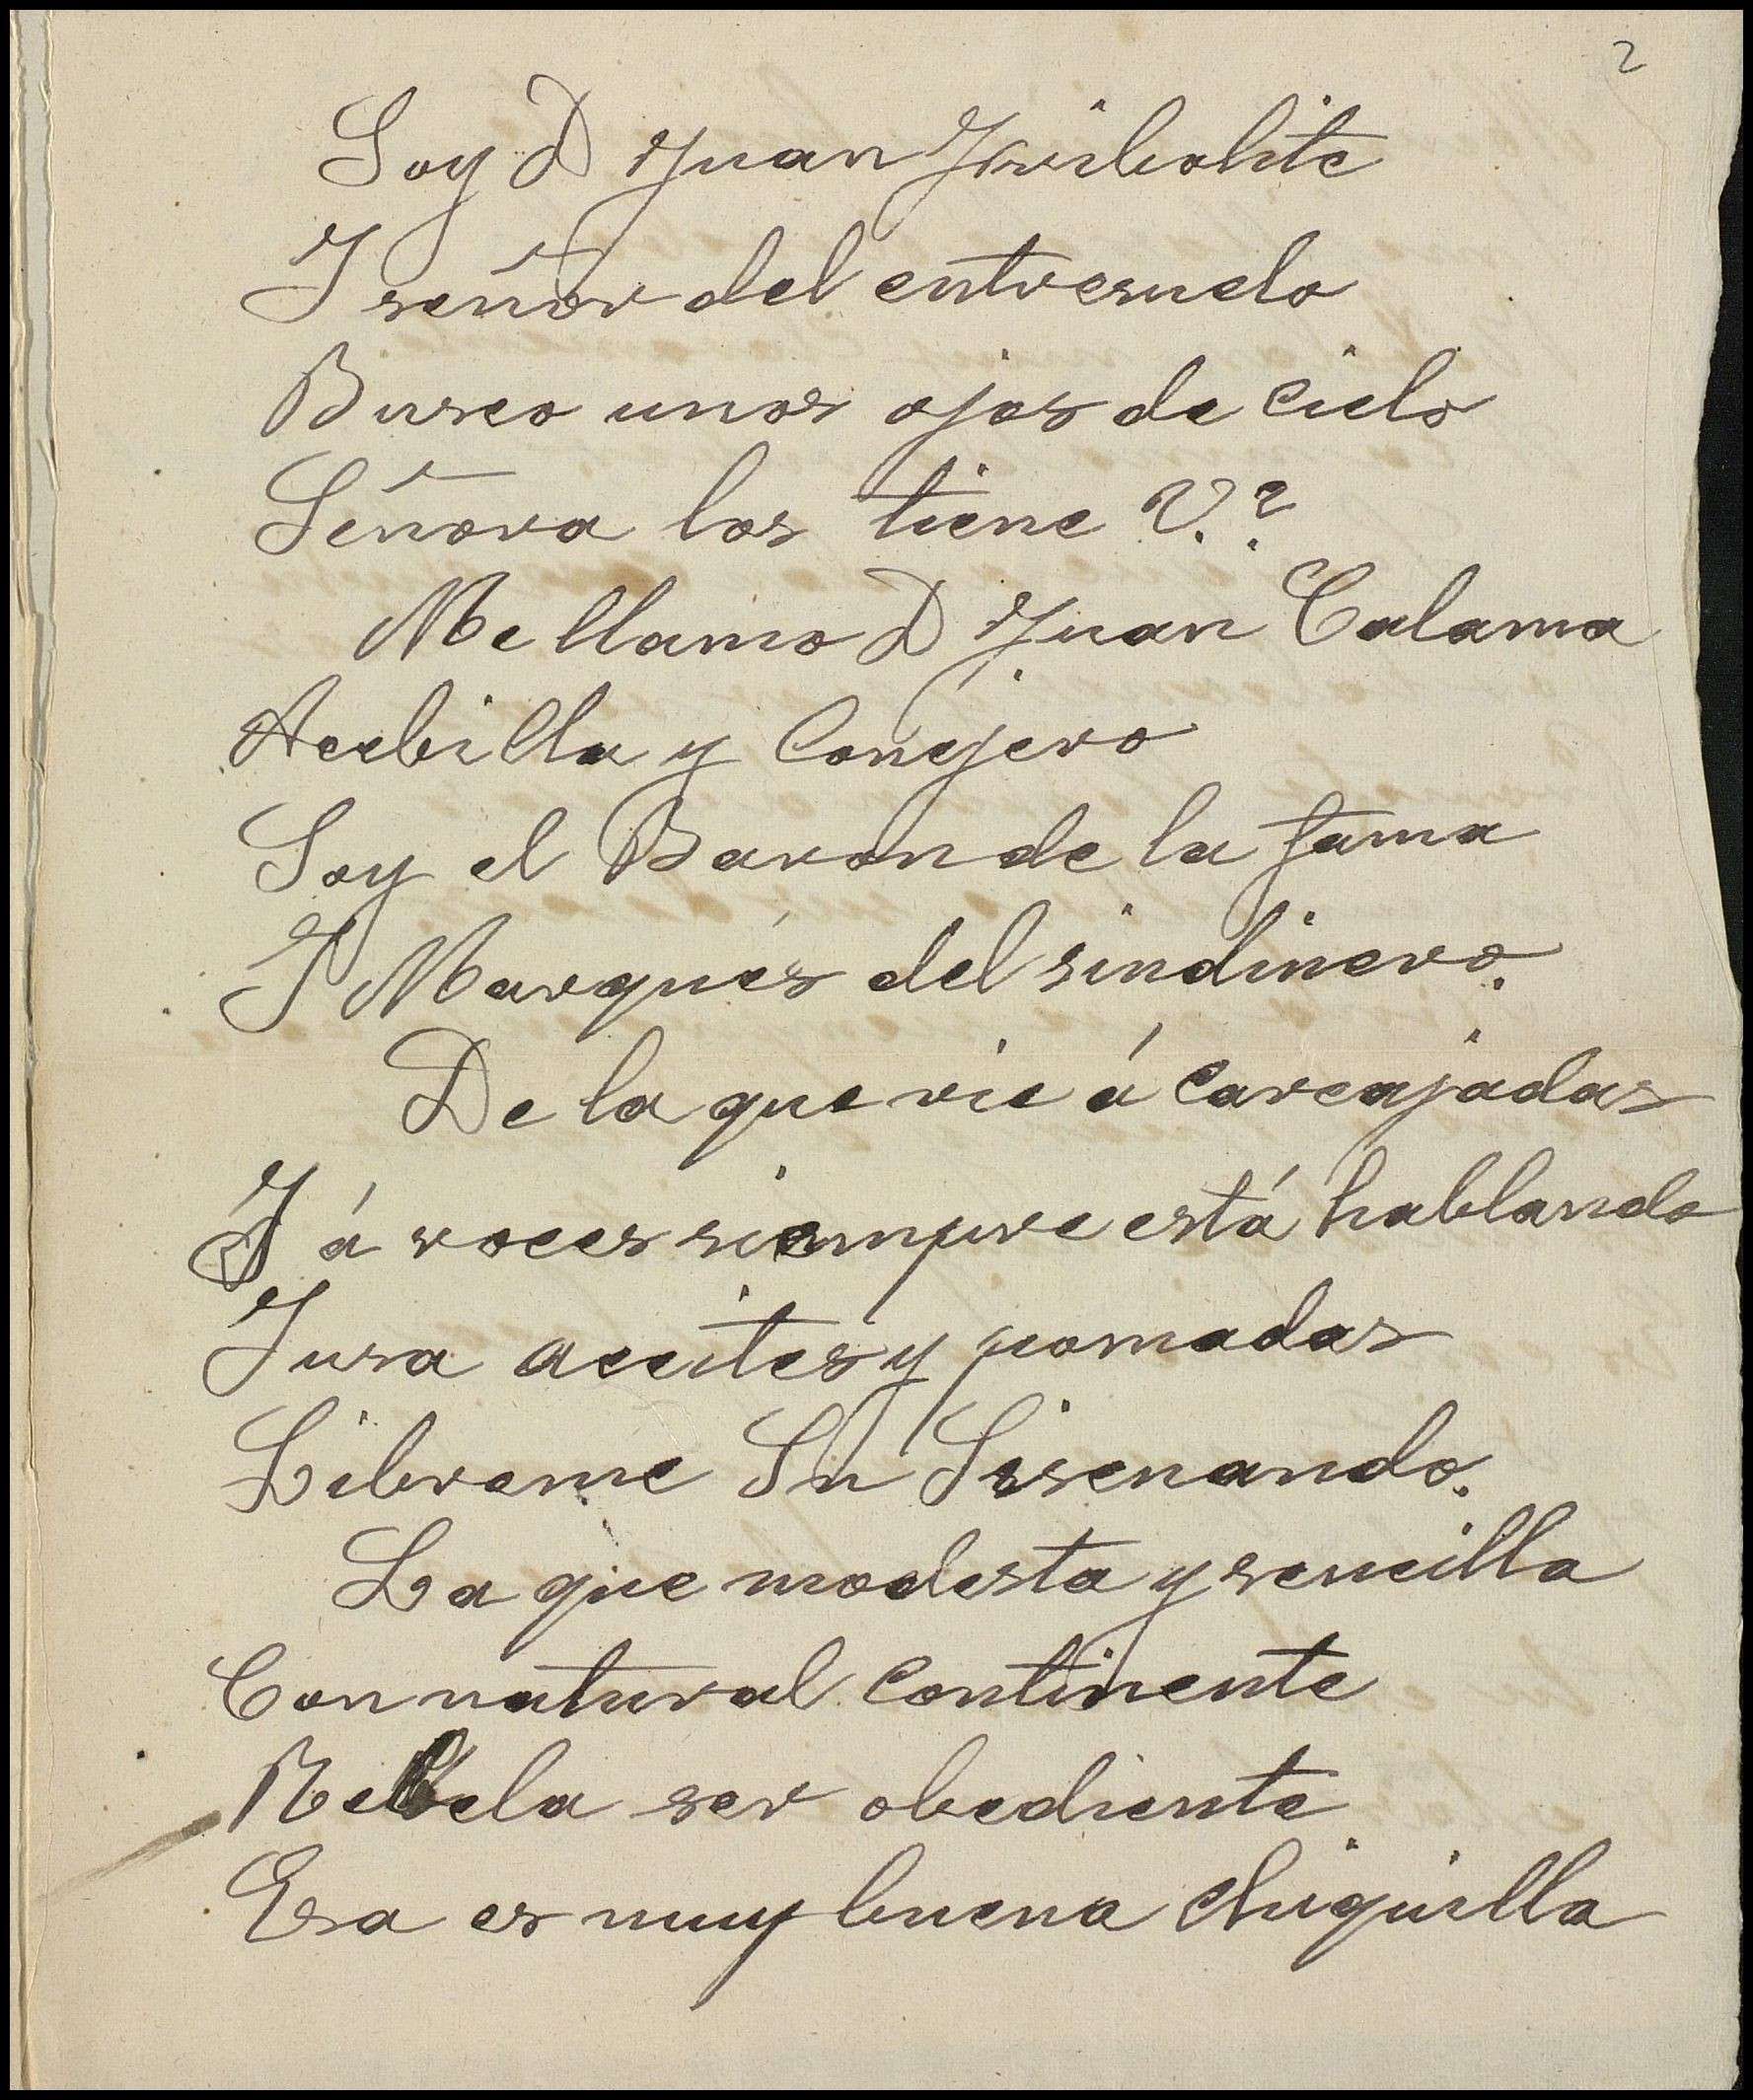 2
Soy D Juan
Y señor del entresuelo
Busco unos ojos de cielo
Señora los tiene V.?
Me llamo D Juan Calama
Acebilla y Conejero
Soy el Baron de la fama
Y Marqués del sindinero.
De la que rie á carcajadas
Y á voces siempre está hablando
Y usa aceites y pomadas
Librame Sn Sisenando.
La que modesta y sencilla
Con natural continente
Rebela ser obediente
Esa es muy buena chiquilla